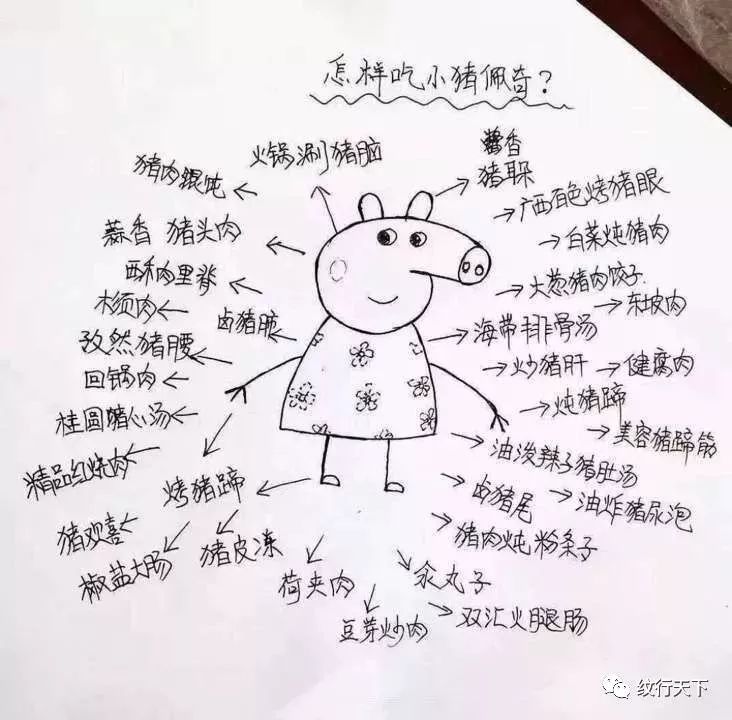 怎样吃小猪佩奇?
火锅涮猪脑
酱香
猪耳朵
猪肉馄饨
广西百色烤猪眼
蒜香 猪头肉
白菜炖猪肉
酥肉里脊
大葱猪肉饺子
木须肉
卤猪脸
东坡肉
海带排骨汤
孜然猪腰
炒猪肝
回锅肉
炖猪蹄
桂圆猪心汤
美容猪蹄筋
油泼辣子猪肚汤
精品红烧肉
烤猪蹄
卤猪尾
油炸猪尿泡
猪肉炖粉条子
猪欢喜
猪皮冻
椒盐大肠
荷夹肉
汆丸子
豆芽炒肉
双汇火腿肠
纹行天下